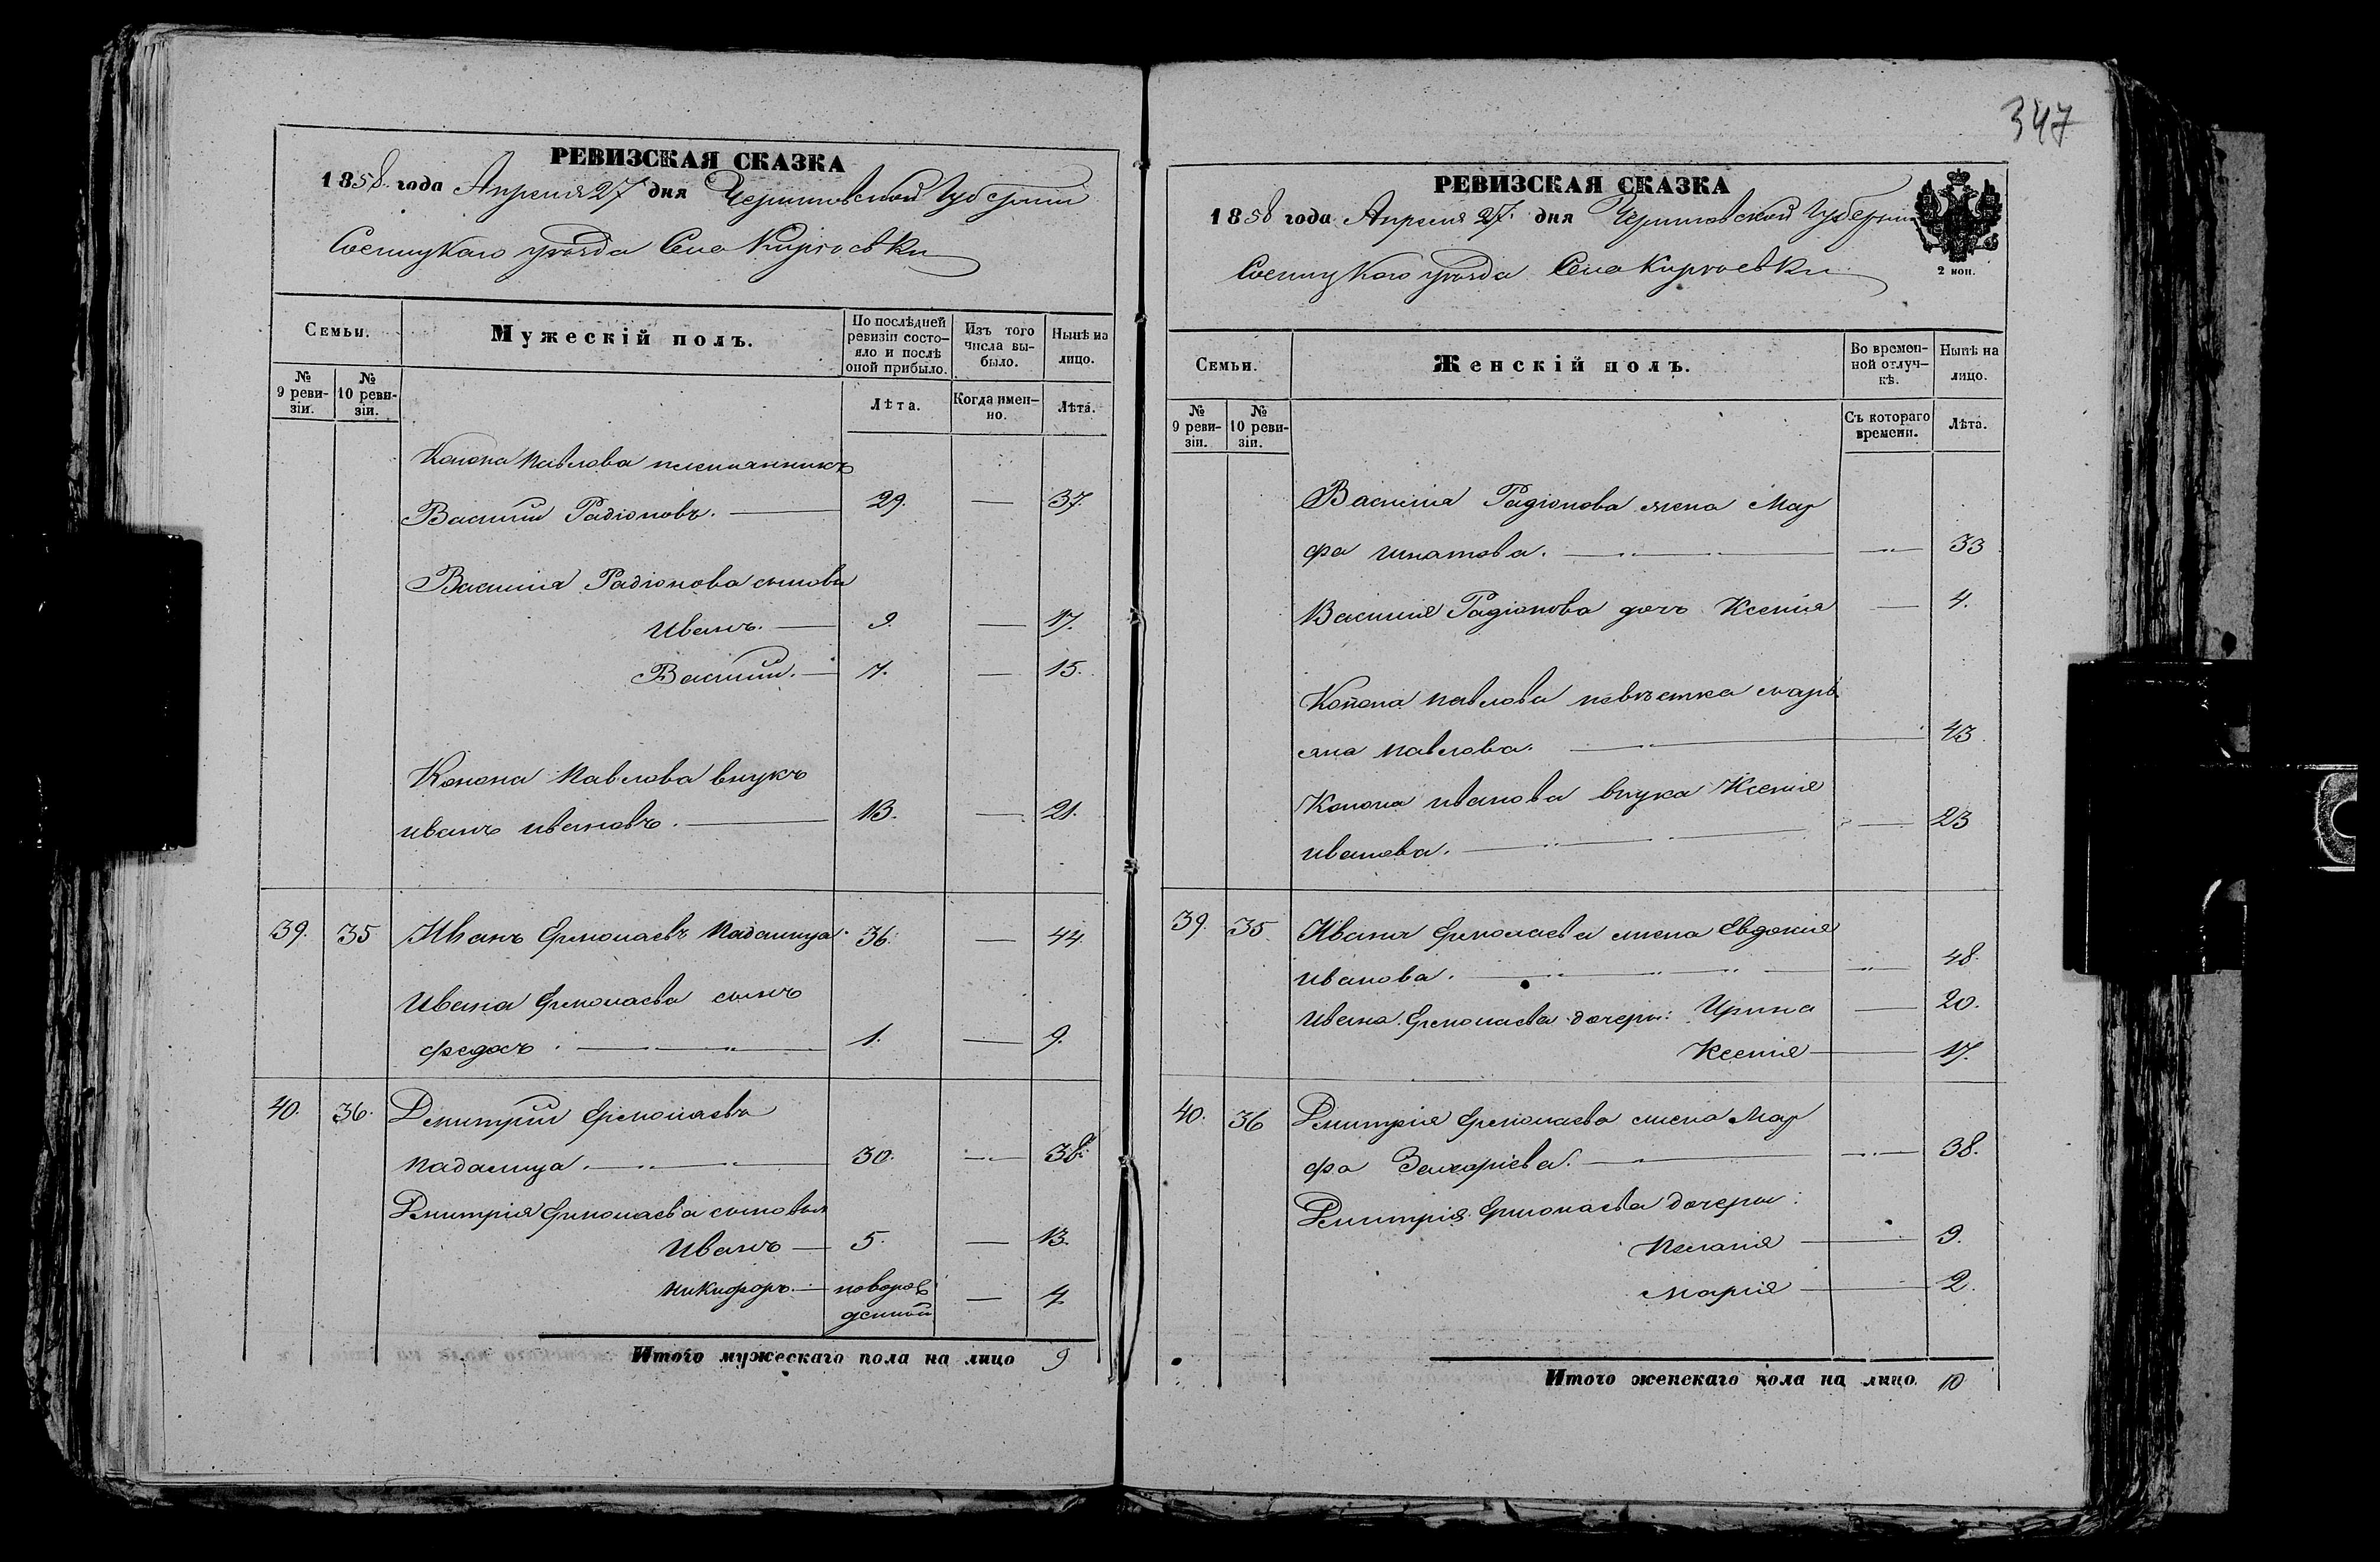 347
РЕВИЗСКАЯ СКАЗКА
1858. года Апреля 27 дня Черниговской Губернии
Сосницкаго уѣзда Села Киріевки
Семьи.
Мужескій полъ.
По послѣдней ревизіи состояло и послѣ оной прибыло.
Изъ того числа выбыло.
Нынѣ на лицо.
№ 9 ревизіи.
№ 10 ревизіи.
Лѣта.
Когда именно.
Лѣта.
Конона Павлова племянникъ
Василій Радіоновъ. 29. — 37.
Василія Радіонова сыновя
Иванъ. — 9. — 17.
Василій. — 7. — 15.
Конона Павлова внукъ
Иванъ Ивановъ. — 13. — 21.
39. 35 Иванъ Ермолаевъ Падалица. 36. — 44.
Ивана Ермолаева сынъ
Федосъ. — 1. — 9.
40. 36. Дмитрій Ермолаевъ
Падалица. — 30. — 38.
Дмитрія Ермолаева сыновья
Иванъ — 5. — 13.
Никифоръ. — новорожденный — 4
Итого мужескаго пола на лицо 9
РЕВИЗСКАЯ СКАЗКА
1858 года Апреля 27. дня Черниговской Губернии
Сосницкаго уѣзда Села Киріевки
2 коп.
Семьи.
Женскій полъ.
Во временной отлучкѣ.
Нынѣ на лицо.
№ 9 ревизіи.
№ 10 ревизіи.
Съ котораго времени.
Лѣта.
Василія Радіонова жена Мар
фа Игнатова. — 33
Василія Радіонова дочь Ксенія — 4.
Конона Павлова невѣстка Марь
яна Павлова. — 43
Конона Иванова внука Ксенія
Иванова. — 23
39. 35. Ивана Ермолаева жена Евдокія
Иванова. — 48.
Ивана Ермолаева дочери: Ирина — 20.
Ксенія — 17.
40. 36 Дмитрія Ермолаева жена Мар
фа Захаріева. — 38.
Дмитрія Ермолаева дочери:
Пелагія — 9.
Марія — 2.
Итого женскаго пола на лицо. 10